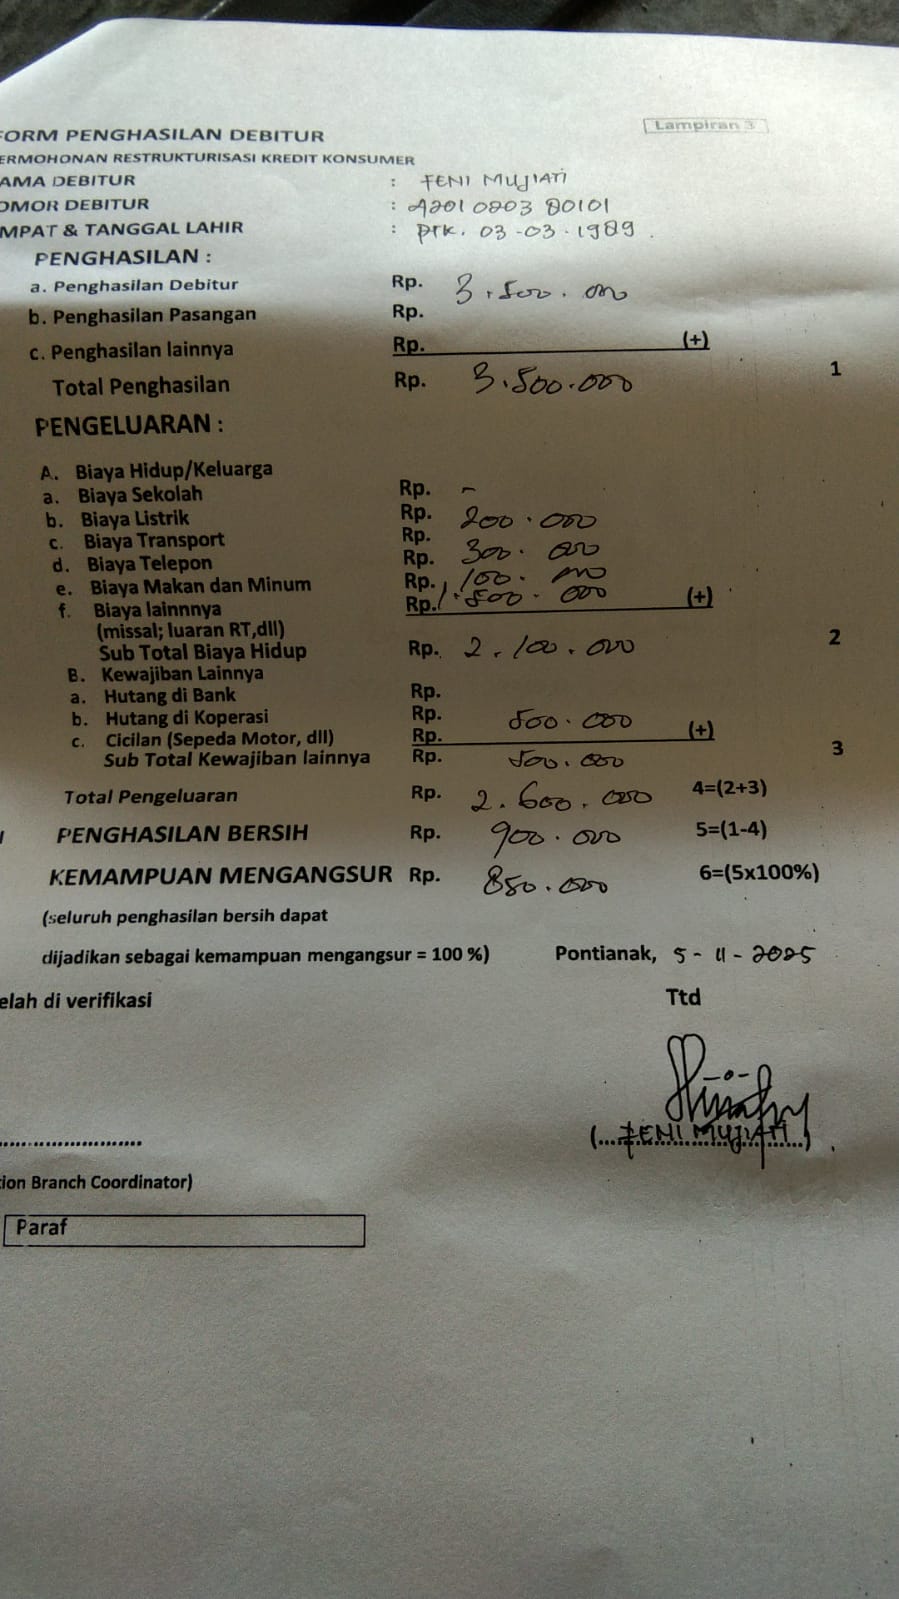 Lampiran 3
FORM PENGHASILAN DEBITUR
ERMOHONAN RESTRUKTURISASI KREDIT KONSUMER
AMA DEBITUR : FENI MUJIATI
OMOR DEBITUR :
MPAT & TANGGAL LAHIR : PTK. 03-03-1989.
PENGHASILAN :
a. Penghasilan Debitur Rp. 3.500.000
b. Penghasilan Pasangan Rp.
c. Penghasilan lainnya Rp. (+)
Total Penghasilan Rp. 3.500.000 1
PENGELUARAN :
A. Biaya Hidup/Keluarga
a. Biaya Sekolah Rp. -
b. Biaya Listrik Rp. 200.000
c. Biaya Transport Rp. 300.000
d. Biaya Telepon Rp. 100.000
e. Biaya Makan dan Minum Rp. 1.500.000
f. Biaya lainnnya Rp. (+)
(missal; luaran RT,dll)
Sub Total Biaya Hidup Rp. 2.100.000 2
B. Kewajiban Lainnya
a. Hutang di Bank Rp.
b. Hutang di Koperasi Rp. 500.000
c. Cicilan (Sepeda Motor, dll) Rp. (+)
Sub Total Kewajiban lainnya Rp. 500.000 3
Total Pengeluaran Rp. 2.600.000 4=(2+3)
PENGHASILAN BERSIH Rp. 900.000 5=(1-4)
KEMAMPUAN MENGANGSUR Rp. 850.000 6=(5x100%)
(seluruh penghasilan bersih dapat
dijadikan sebagai kemampuan mengangsur = 100 %) Pontianak, 5-11-2025
elah di verifikasi Ttd
(...FENI MUJIATI...).
tion Branch Coordinator)
Paraf